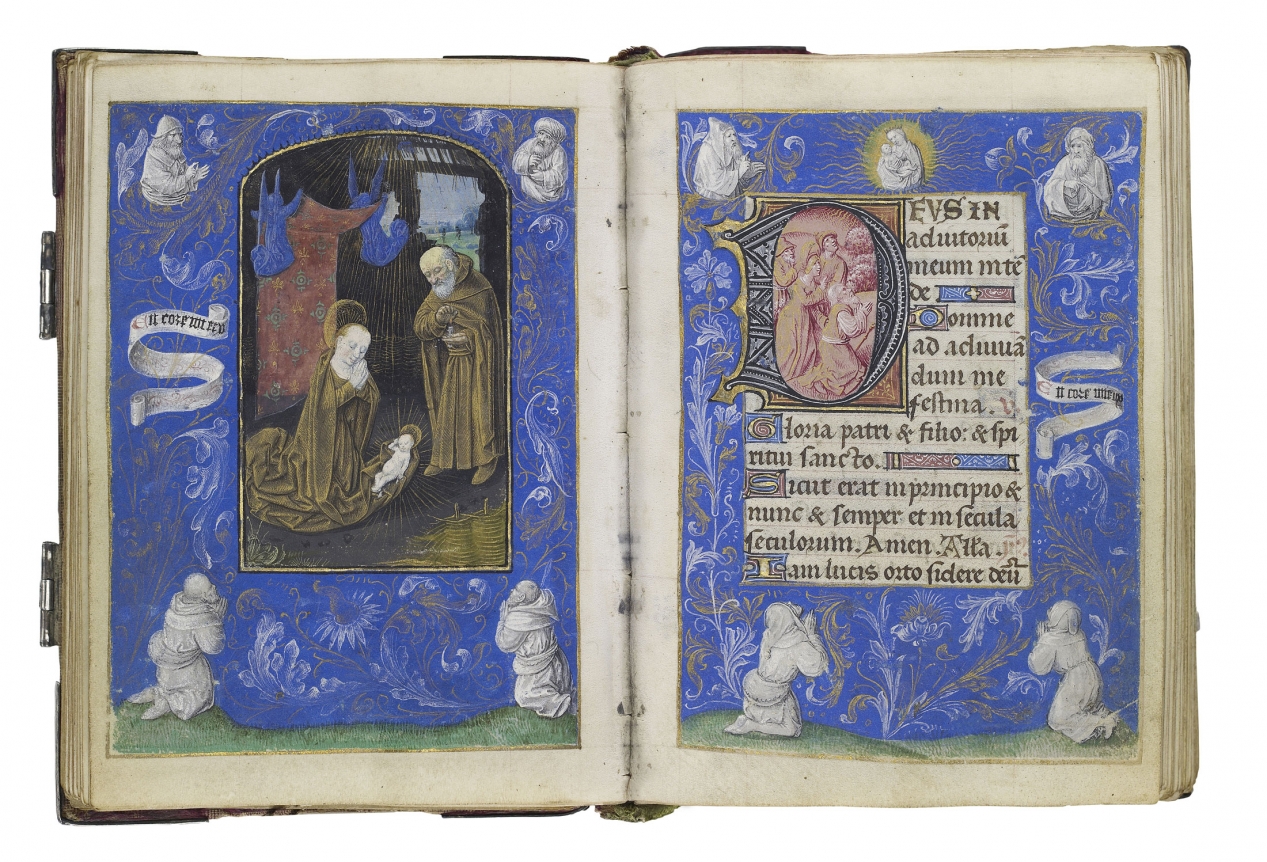 DEVS IN
adiutoriū
meum intē
de
Domine
ad adiuuā
dum me
festina.
Gloria patri & filio: & spi
ritui sancto.
Sicut erat in principio &
nunc & semper et in secula
seculorum. Amen. Alla.
Iam lucis orto sidere deū